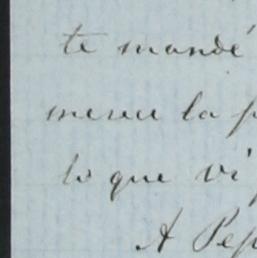 te mandé
merece la p
lo que vi
A Pep